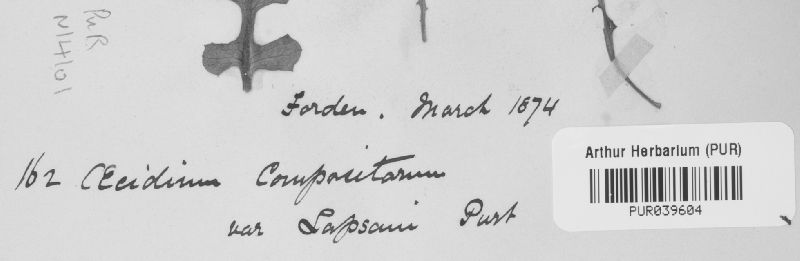 PuR
N14101
Forden. March 1874
162 Œcidium Compositarum
var Lapsani Purt
Arthur Herbarium (PUR)
PUR039604